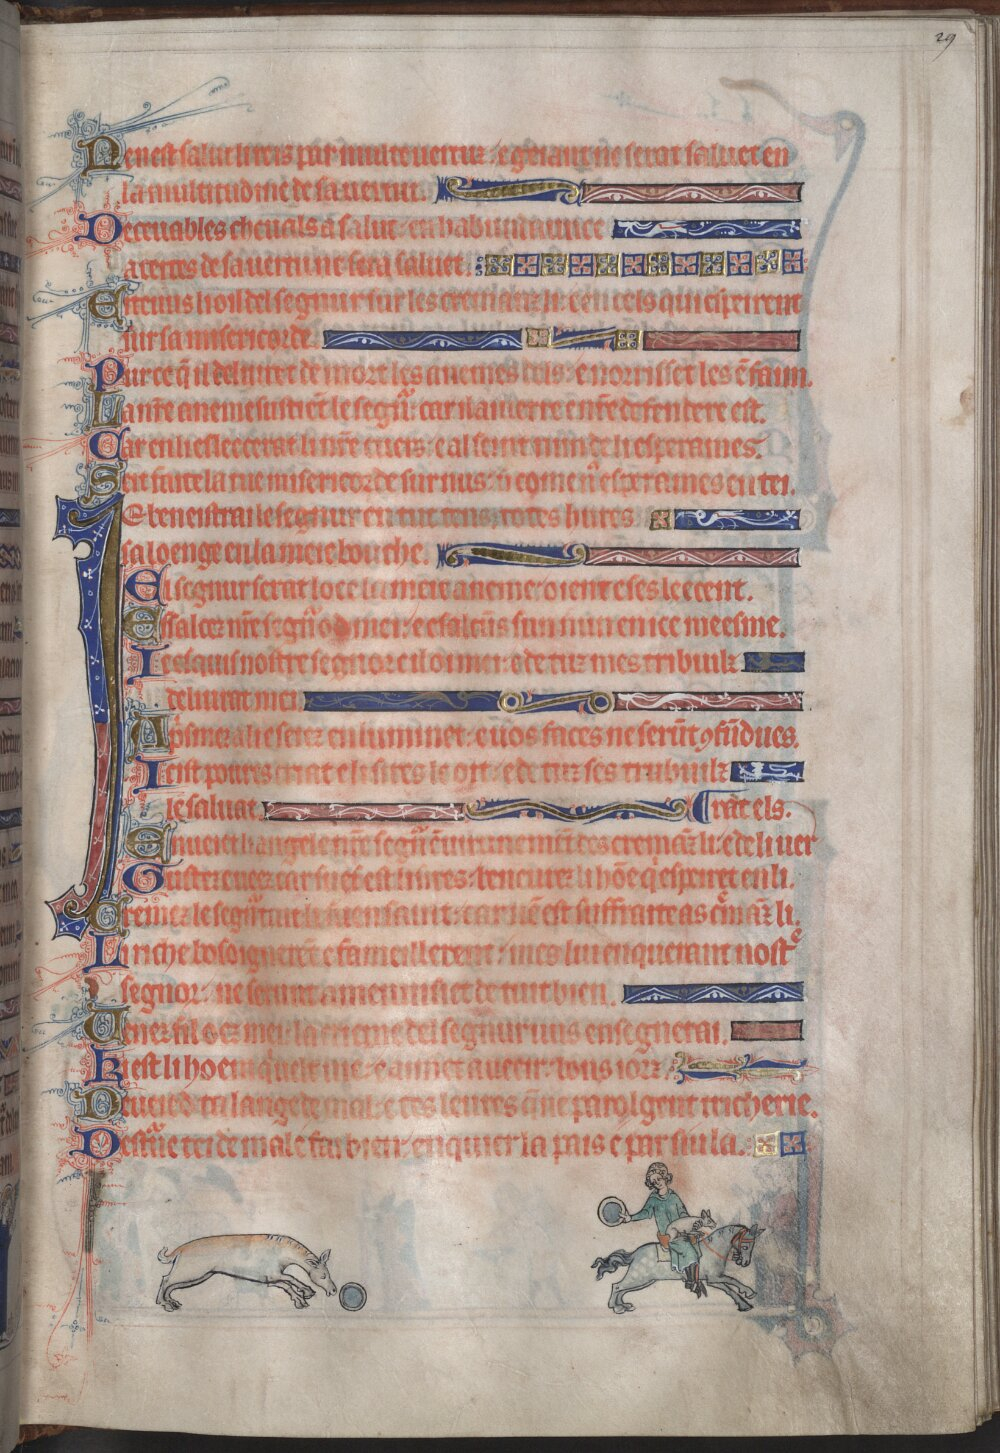 29
Nenest salut li reis par multe vertuz: e geianz ne serat salvet en
la multitudine de sa vertut.
Decevables chevals a salut: en habundaunce
acertes de sa vertu ne serat salvet.
Este vus li oil del segnur sur les cremanz li: e en cels qui espeirent
sur sa misericorde.
Pur ce q il delivret de mort les anemes dels: e norrisset les e faim.
La nre aneme sustient le segnr: car il aiuerre e nre defendere est.
Car en li esleecerat li nre cuers: e al seint num de li esperames.
Seit faite la tue misericorde sur nus: si come nus esperames en tei.
Je beneistrai le segnur en tut tens: totes hures
sa loenge en la meie bouche.
El segnur serat loee la meie aneme: oient e esleecent.
Essalcez nre segnr od mei: e essalcus sun num en ice meesme.
Je quis nostre segnor e il oi mei: e de tuz mes tribuilz
delivrat mei.
Apsmez a lie serez enluminet: e vos faces ne serunt confundues.
Icist povres criat e li sires le oit: e de tuz ses tribuilz
le salvat.
rat els.
Enveiet li angele nre segnr envirunement des cremanz li: e deliver
Gustez e veez car suef est li sires: beneurez li hoe qi espeiret en li.
Cremez le segnr tuit li suen saint: car nen est suffraite as cremanz li.
Li riche besoignerent e fameillerent: mes li enquerant nost
segnor: ne serunt amenuisiet de tut bien.
Venez fil oez mei: la crieme del segnur vus enseignerai.
Ki est li hoem qi velt vie: e aimet a veeir bons jorz.
Devied ta lange de mal: e tes levres que ne parolgent tricherie.
Destue tei de mal e fai bien: enquier la pais e parsui la.